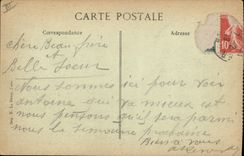 CARTE POSTALE
Correspondance
Adresse
chère Beau frère
et
Belle Soeur
Nous sommes ici pour voir
antoine qui va mieux et
nous pensons qu'il sera parmi
nous la semaine prochaine
Bien à vous
10